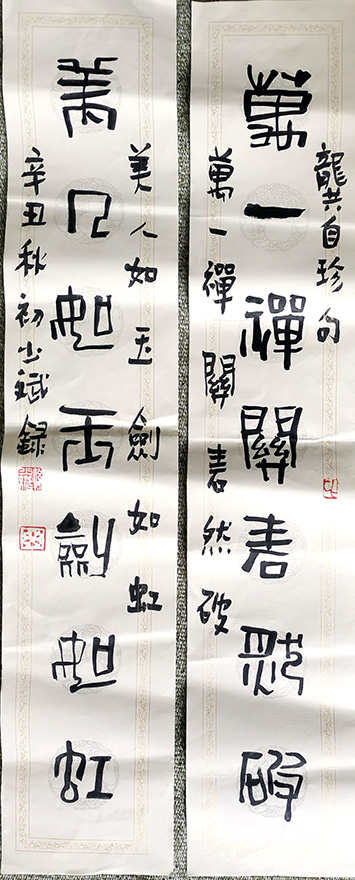 龔自珍句
萬一禪關砉然破
萬一禪關砉然破
美人如玉劍如虹
美人如玉劍如虹
辛丑秋初斌録